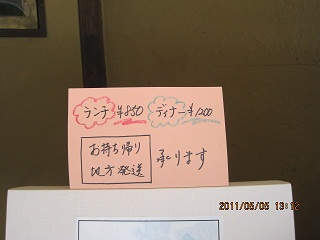 ランチ ¥850 ディナー ¥1200
お持ち帰り
地方発送
承ります
2011/05/05 13:12